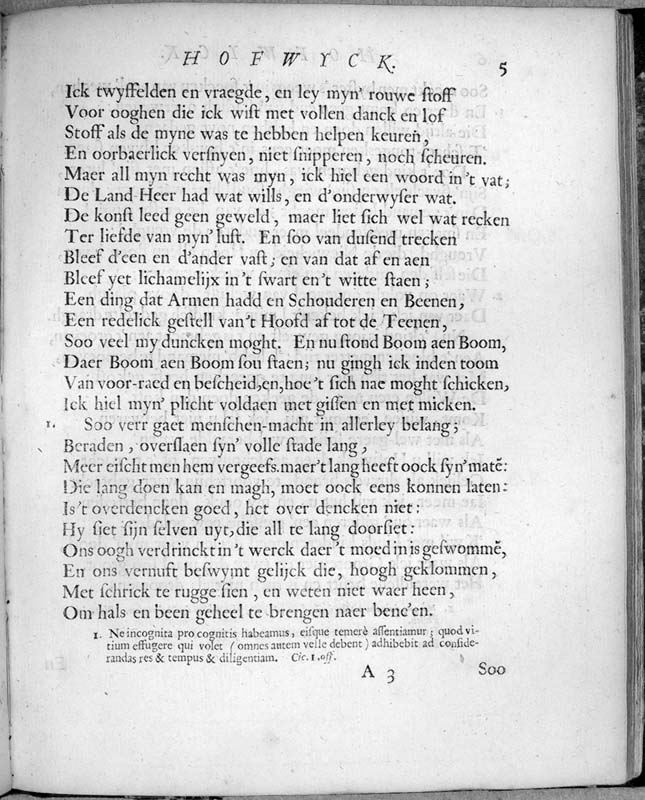 HOFWYCK. 5
Ick twyffelden en vraegde, en ley myn' rouwe ſtoff
Voor ooghen die ick wiſt met vollen danck en lof
Stoff als de myne was te hebben helpen keuren,
En oorbaerlick verſnyen, niet ſnipperen, noch ſcheuren.
Maer all myn recht was myn, ick hiel een woord in 't vat;
De Land-Heer had wat wills, en d'onderwyſer wat.
De konſt leed geen geweld, maer liet ſich wel wat recken
Ter liefde van myn' luſt. En ſoo van duſend trecken
Bleef d'een en d'ander vaſt; en van dat af en aen
Bleef yet lichamelijx in 't ſwart en 't witte ſtaen;
Een ding dat Armen hadd en Schouderen en Beenen,
Een redelick geſtell van't Hoofd af tot de Teenen,
Soo veel my duncken moght. En nu ſtond Boom aen Boom,
Daer Boom aen Boom ſou ſtaen; nu gingh ick inden toom
Van voor-raed en beſcheid, en, hoe't ſich nae moght ſchicken,
Ick hiel myn' plicht voldaen met giſſen en met micken.
1. Soo verr gaet menſchen-macht in allerley belang;
Beraden, overſlaen ſyn' volle ſtade lang,
Meer eiſcht men hem vergeefs. maer't lang heeft oock ſyn' matē:
Die lang doen kan en magh, moet oock eens konnen laten:
Is't overdencken goed, het over dencken niet:
Hy ſiet ſijn ſelven uyt, die all te lang doorſiet:
Ons oogh verdrinckt in 't werck daer't moed in is geſwommē,
En ons vernuft beſwymt gelijck die, hoogh geklommen,
Met ſchrick te rugge ſien, en weten niet waer heen,
Om hals en been geheel te brengen naer bene'en.
1. Ne incognita pro cognitis habeamus, eiſque temerè aſſentiamur; quod vi-
tium effugere qui volet (omnes autem velle debent) adhibebit ad conſide-
randas res & tempus & diligentiam. Cic. 1. off.
A 3 Soo